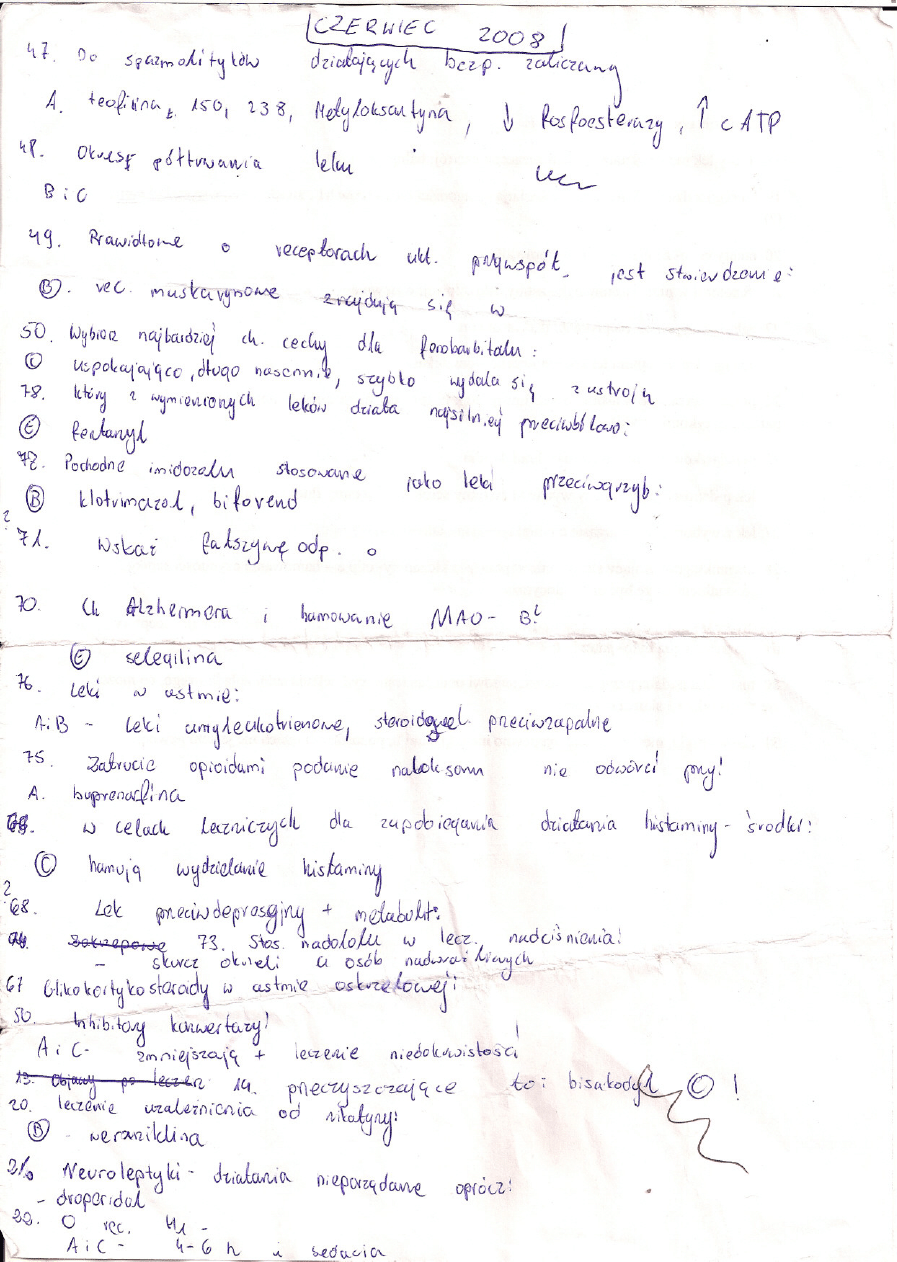 CZERWIEC 2008
47. Do spazmolityków działających bezp. zaliczamy
A. teofilina, 150, 238, Metyloksantyna, ↓ fosfoesterazy, ↑ c ATP
48. Okresy półtrwania leku
B i C
49. Prawidłowe o receptorach ukł. przywspół. jest stwierdzenie:
(B). rec. muskarynowe znajdują się w
50. Wybierz najbardziej ch. cechy dla fenobarbitalu:
(C) uspokajająco, długo nasennie, szybko wydala się z ustroju
78. który z wymienionych leków działa najsilniej przeciwbólowo:
(E) fentanyl
72. Pochodne imidozolu stosowane jako leki przeciwgrzyb:
(B) klotrimazol,
? 71. Wskaż fałszywę odp. o
70. Ch Alzheimera i hamowanie MAO-B:
(E) selegilina
76. Leki w astmie:
A i B - Leki przeciwzapalne
75. Zatrucie opioidami podanie naloksonu nie odwróci przy!
A. buprenorfina
w celach leczniczych dla zapobiegania działania histaminy - środki:
(C) hamują wydzielanie histaminy
? 68. Lek przeciwdepresyjny + metabolit:
73. Stos. nadololu w lecz. nadciśnienia:
- skurcz okrzeli u osób nadwrażliwych
67 Glikokortykosterody w astmie oskrzelowej:
50. Inhibitory konwertazy!
A i C - zmniejszają + leczenie niedokrwistości
19. przeczyszczające to: bisakodyl (C) !
20. leczenie uzależnienia od nikotyny:
(B) - wereniklina
21. Neuroleptyki - działania nieporządane oprócz:
- droperidol
22. O rec. H1 -
A i C - 4-6 h i sedacja